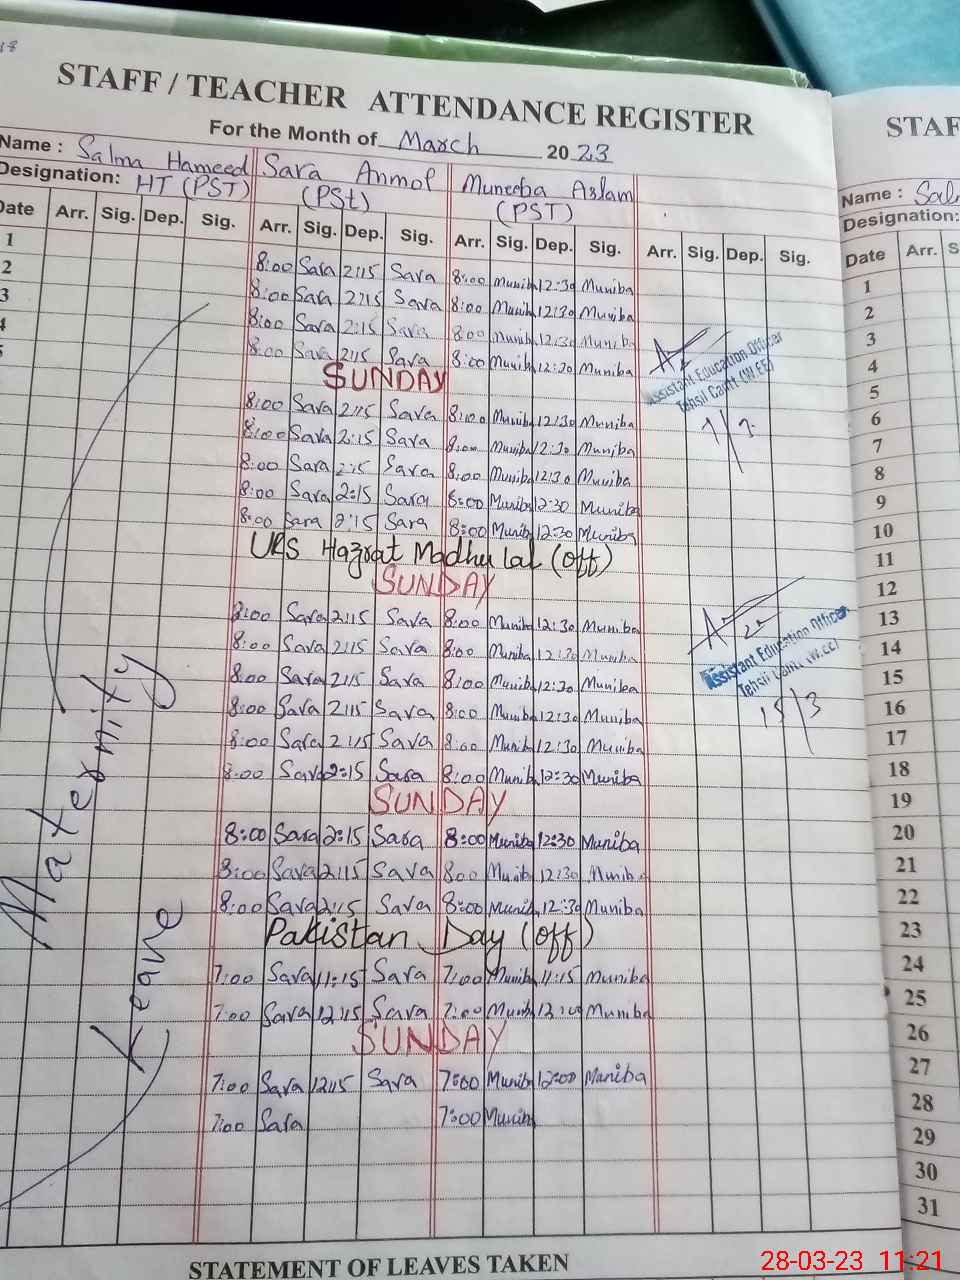 STAFF / TEACHER ATTENDANCE REGISTER
For the Month of March 2023
Name : Salma Hameed Sara Anmol Muneeba Aslam
Designation: HT (PST) (PSt) (PST)
Date Arr. Sig. Dep. Sig. Arr. Sig. Dep. Sig. Arr. Sig. Dep. Sig. Arr. Sig. Dep. Sig.
1 8:00 Sara 2:15 Sara 8:00 Munib 12:30 Muniba
2 8:00 Sara 2:15 Sara 8:00 Munib 12:30 Muniba
3 8:00 Sara 2:15 Sara 8:00 Munib 12:30 Muniba
4 8:00 Sara 2:15 Sara 8:00 Munib 12:30 Muniba
SUNDAY
8:00 Sara 2:15 Sara 8:00 Munib 12:30 Muniba
8:00 Sara 2:15 Sara 8:00 Munib 12:30 Muniba
8:00 Sara 2:15 Sara 8:00 Muniba 12:30 Muniba
8:00 Sara 2:15 Sara 8:00 Munib 12:30 Muniba
8:00 Sara 2:15 Sara 8:00 Munib 12:30 Muniba
URS Hazrat Madhu Lal (off)
SUNDAY
8:00 Sara 2:15 Sara 8:00 Muniba 12:30 Muniba
8:00 Sara 2:15 Sara 8:00 Muniba 12:30 Muniba
8:00 Sara 2:15 Sara 8:00 Muniba 12:30 Muniba
8:00 Sara 2:15 Sara 8:00 Munib 12:30 Muniba
8:00 Sara 2:15 Sara 8:00 Munib 12:30 Muniba
8:00 Sara 2:15 Sara 8:00 Munib 12:30 Muniba
SUNDAY
8:00 Sara 2:15 Sara 8:00 Muniba 12:30 Muniba
8:00 Sara 2:15 Sara 800 Munib 12:30 Muniba
8:00 Sara 2:15 Sara 8:00 Munib 12:30 Muniba
Pakistan Day (off)
7:00 Sara 11:15 Sara 7:00 Muniba 11:15 Muniba
7:00 Sara 12:15 Sara 7:00 Munib 12:00 Muniba
SUNDAY
7:00 Sara 12:15 Sara 7:00 Munib 12:00 Muniba
7:00 Sara 7:00 Munib
Maternity
Leave
Assistant Education Officer
Tehsil Cantt (W.EE)
Assistant Education Officer
Tehsil Cantt (W.EE)
15/3
STATEMENT OF LEAVES TAKEN
STAF
Name : Sal
Designation:
Date Arr. S
1
2
3
4
5
6
7
8
9
10
11
12
13
14
15
16
17
18
19
20
21
22
23
24
25
26
27
28
29
30
31
28-03-23 11:21